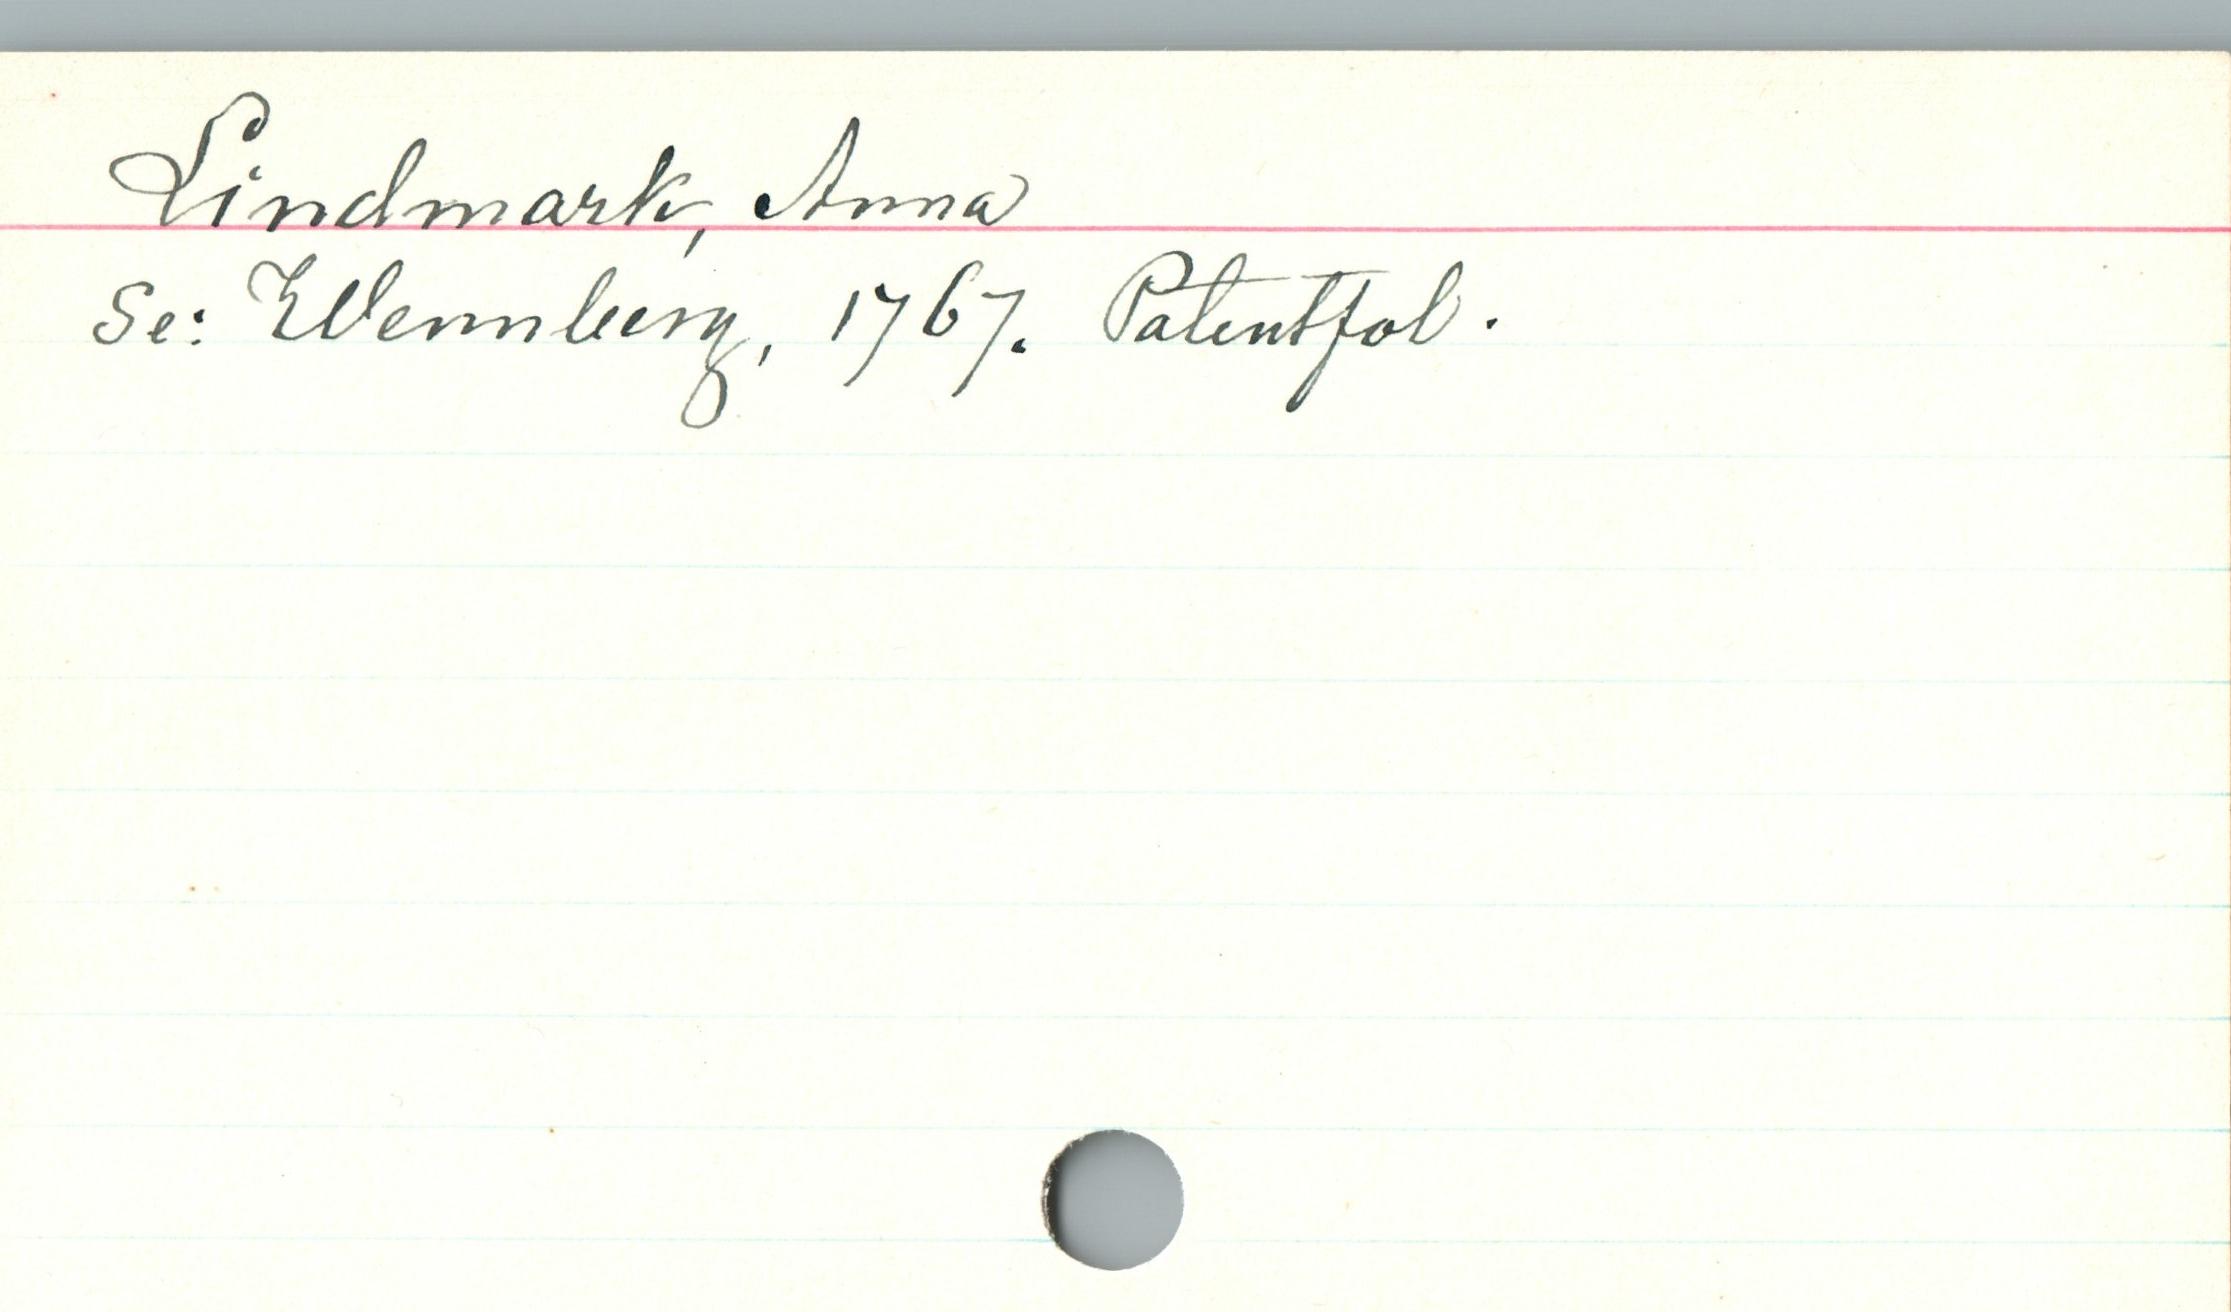 Lindmark, Anna
Se: Wennberg, 1767. Patentfol.